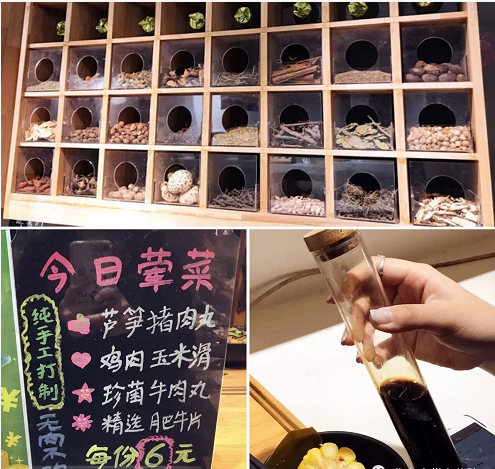 今日荤菜
纯手工打制
芦笋猪肉丸
鸡肉玉米滑
珍菌牛肉丸
精选肥牛片
每份6元